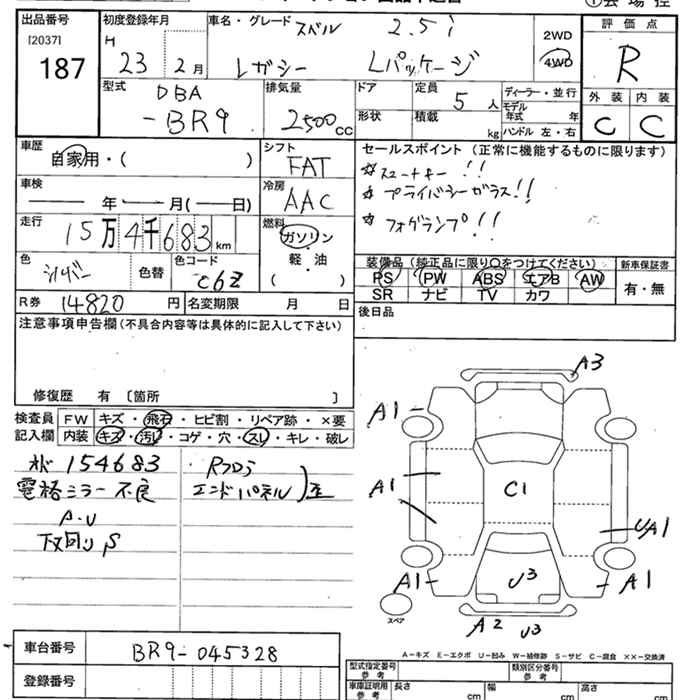 出品番号
[2037]
187
初度登録年月
H
23 2月
車名・グレード スバル 2.5i
レガシー Lパッケージ
2WD
4WD
評価点
R
外装 内装
C C
型式
DBA
-BR9
排気量
2500cc
ドア
形状
定員 5人
積載 kg
ディーラー・並行
モデル年式 年式
ハンドル 左・右
車歴
自家用・( )
シフト
FAT
車検
年 月( 日)
冷房
AAC
走行
15万4千683km
燃料
ガソリン
軽・油
( )
色
シルバー
色替
色コード
C6Z
R券 14820円
名変期限 月 日
セールスポイント(正常に機能するものに限ります)
☆スマートキー!!
☆プライバシーガラス!!
☆フォグランプ!!
装備品(純正品に限り○をつけてください)
PS PW ABS エアB AW
SR ナビ TV カワ
新車保証書
有・無
後日品
注意事項申告欄(不具合内容等は具体的に記入して下さい)
修復歴 有 〔箇所 〕
検査員
記入欄
FW キズ・飛石・ヒビ割・リペア跡・×要
内装 キズ・汚レ・コゲ・穴・スレ・キレ・破レ
154683
電格ミラー不良
A・U
下回りS
Rフロア
エンドパネル
A3
A1
A1
C1
UA1
A1
U3
A1
A2 U3
スペア
A-キズ E-エクボ U-凹み W-補修跡 S-サビ C-腐食 ××-交換済
車台番号 BR9-045328
登録番号
型式指定番号
参考
類別区分番号
参考
車庫証明用
参考
長さ cm
幅 cm
高さ cm